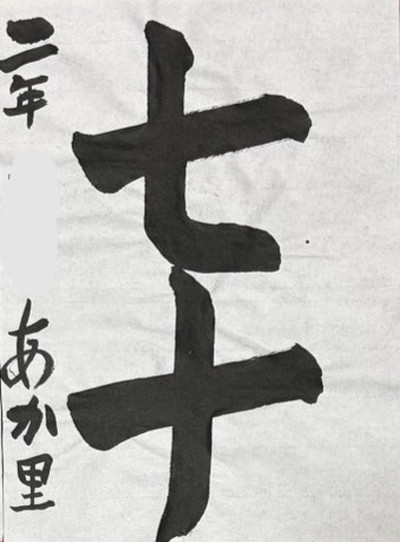 七十
二年 あか里